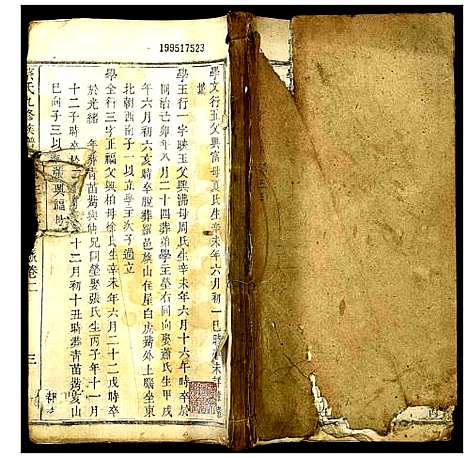 199517523
學文行玉父興富母袁氏生辛未年六月初一巳時
學玉行一字映玉父興沸母周氏生辛未年六月十六午時卒於
同治己卯年八月二十四葬弟學主塋右同向娶蕭氏生甲戌
年六月初六亥時卒葬羅邑族山住屋白虎觜外上驤坐東
北朝西南子一以立學主次子過立
學全行三字正福父興柏母徐氏生辛未年六月二十二戌時卒
於光緒 年葬青苗觜與妣兄同塋娶張氏生丙子年十一月
十二子時卒 十二月初十丑時葬青苗觜亥山
巳向子三以 興
氏九修族譜
卷二
三